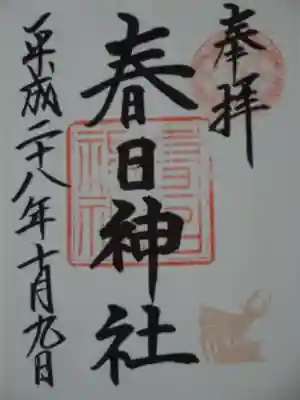 奉拝
春日神社
平成二十八年十月九日